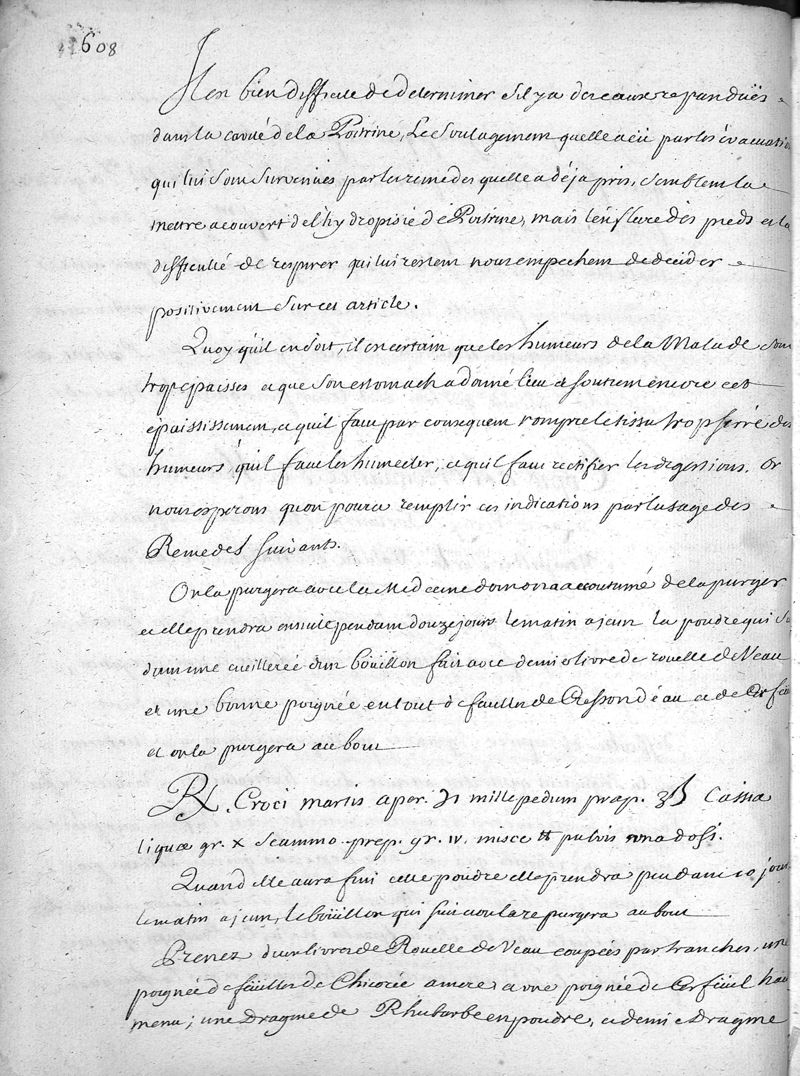 608
Il est bien difficile de determiner s'il y a des eaux repanduës
dans la cavité de la Poitrine, Le soulagement quelle a eü par les évacuations
qui lui sont survenües par les remedes quelle a déja pris, semblent la
mettre a couvert de l'hydropisie de Poitrine, mais l'enflure des pieds et la
difficulté de respirer qui lui restent nous empechent de decider
positivement sur cet article.
Quoy qu'il en soit, il est certain que les humeurs de la Malade sont
trop epaisses et que son estomach a donné lieu et soutient encore cet
épaississement, et quil faut par consequent rompre le tissu trop serré des
humeurs, quil faut les humecter, et quil faut rectifier les digestions. Or
nous esperons quon poura remplir ces indications par lusage des
Remedes suivants.
On la purgera avec la Medecine dont on a accoutumé de la purger
et elle prendra ensuite pendant douze jours le matin a jeun la poudre qui suit
dans une cueillerée d'un boüillon fait avec demie livre de rouelle de Veau
et une bonne poignée en tout de feuilles de Cresson d'eau et de Cerfeüil
et on la purgera au bout
℞. Croci martis aper. ℈i millepedum præp. ʒß Cassia
lignea gr. x Scammo. prep. gr. iv. misce ft pulvis una dosi.
Quand elle aura fini cette poudre elle prendra pendant 10 jours
le matin a jeun, le boüillon qui suit et on la repurgera au bout
Prenez d'un livres de Rouelle de Veau coupées par tranches, une
poignée de feüilles de Chicorée amere et une poignée de Cerfeüil haché
menu; une Dragme de Rhubarbe en poudre, et demie Dragme